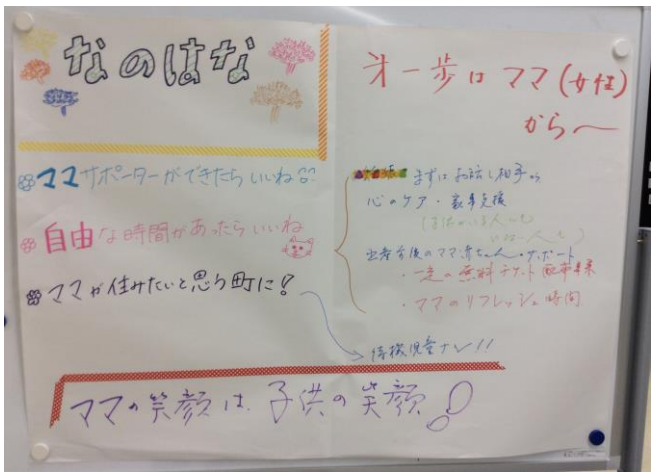 なのはな
ママサポーターができたらいいね
自由な時間があったらいいね
ママが住みたいと思う町に!
才一歩はママ(女性)
から〜
まずはお話し相手から
心のケア・家事支援
出産前後のママ赤ちゃんへのサポート
・一定の無料チケット配布事業
・ママのリフレッシュ時間
待機児童ナシ!!
ママの笑顔は、子供の笑顔!